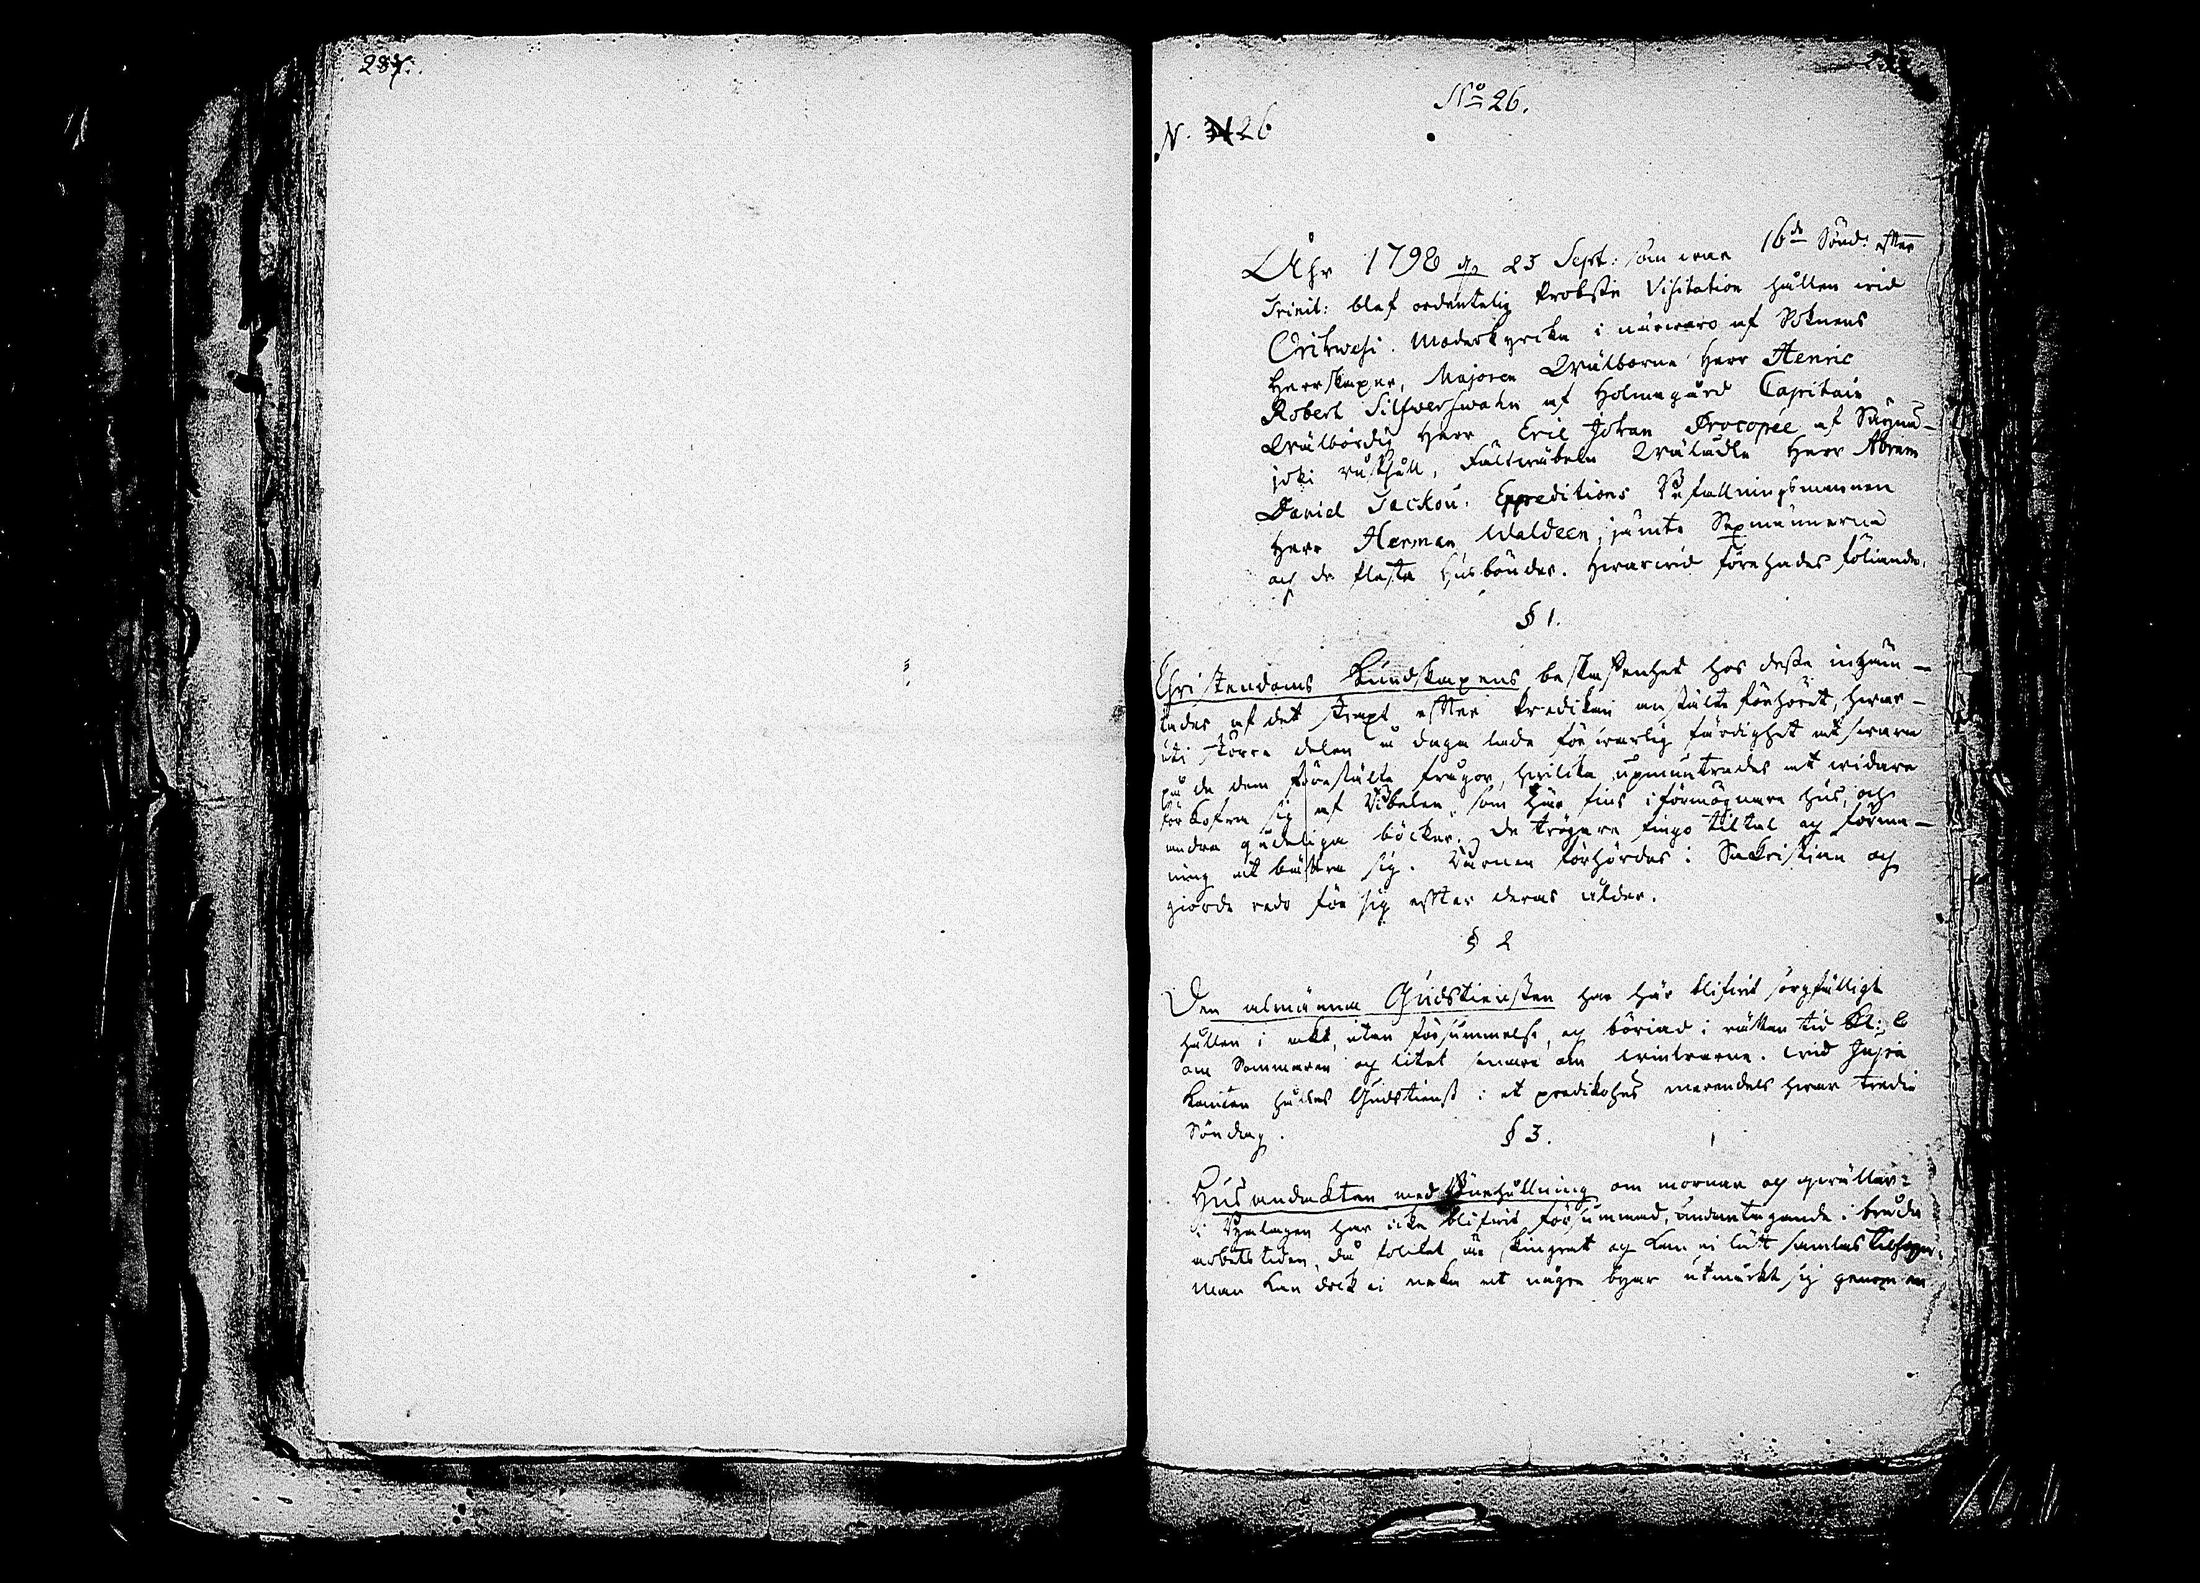 287.
No 26.
N. 26
Åhr 1798 d. 23 Sept: som war 16de Sönd: efter
Trinit: blef ordentelig Probste Visitation hållen wid
Orihwesi Moderkyrcka i närwaro af Soknens
Herrskaper, Majoren Wälborne Herr Henric
Robert Silfwerswahn af Holmagård Capitain
Wälbördig Herr Eric Johan Procopée af Säynä-
joki rusthåll, Fältwäbeln Wäladle Herr Abram
Daniel Tackou. Expeditions Befallningsmannen
Herr Herman Waldeen, jämte Sexmännerna
och de flesta Husbönder. Hwarwid förehades föliande.
§ 1.
Christendoms Kundskapens beskaffenhet hos desse inhäm-
tades af det strax efter Predikan anstälte förhöret, hwar-
uti större delen å daga lade förswarlig färdighet at swara
på de dem förestälte frågor, hwilka upmuntrades at widare
förkofra sig af Bibelen, som här fins i förmögnare hus, och
andra gudeliga böcker. De trögare fingo tiltal och förma-
ning at bättra sig. Barnen förhördes i Sakristian och
giorde redo för sig efter deras ålder.
§ 2
Den almänna Gudstiensten har här blifwit sorgfälligt
hållen i akt, utan försummelse, och böriad i rättan tid Kl: 8
om Sommaren och litet senare om wintrarne. wid Jujia
Kanten hålles Gudstienst i et predikohus merendels hwar tredie
Söndag.
§ 3.
Husandakten med Bönehållning om mornar och qwällar
i Byalagen har icke blifwit försummad, undantagande i bråda
arbetstiden, då folcket är skingrat och kan ej lätt samlas tilhopa.
Man kan dock ei neka at några byar utmärkt sig genom en